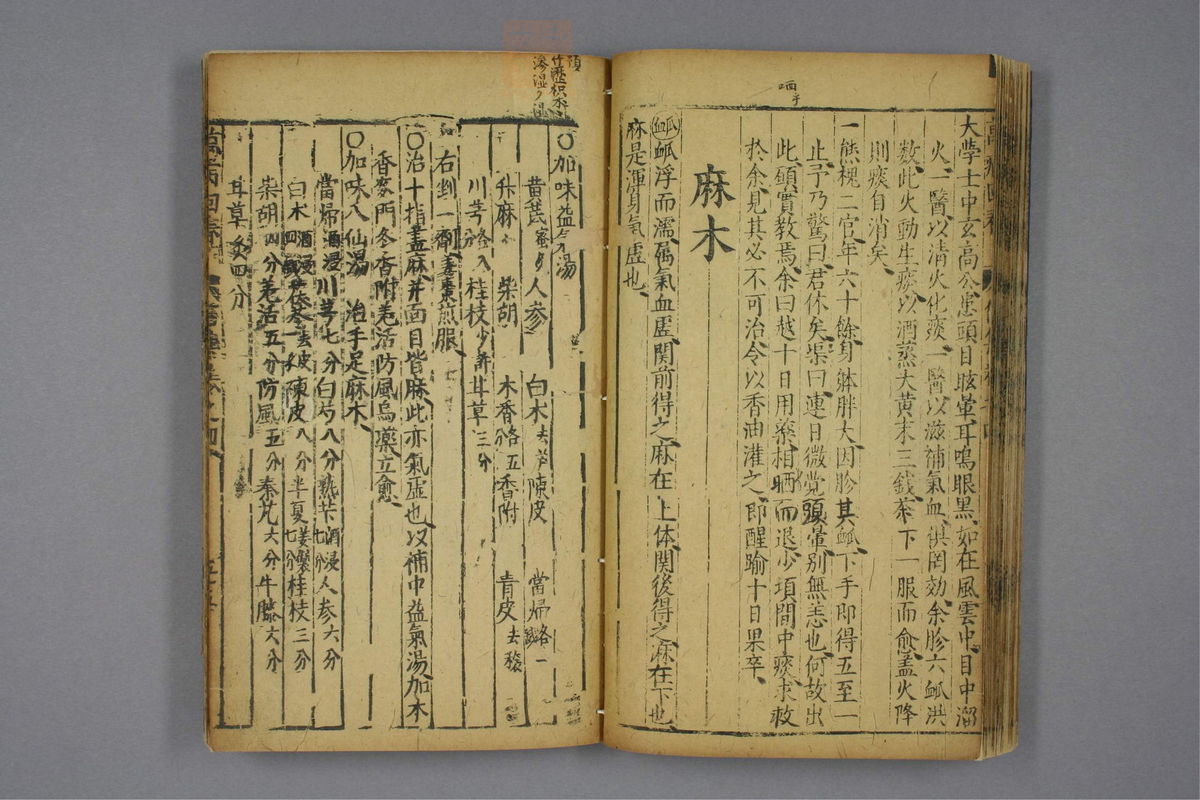 大學士中玄高公患頭目眩暈耳鳴眼黒如在風雲中目中溜
火一醫以清火化痰一醫以滋補氣血俱罔効余胗六脉洪
数此火動生痰以酒蒸大黄末三錢茶下一服而愈盖火降
則痰自消矣
一熊槐二官年六十餘身躰胖大因胗其脉下手即得五至一
止予乃驚曰君休矣渠曰連日微覺頭暈別無恙也何故出
此碩實教焉余曰越十日用藥相晒而退少項間中痰求救
於余見其必不可治令以香油灌之即醒踰十日果卒
麻木
脉脉浮而濡属氣血虚関前得之麻在上体関後得之麻在下也
麻是渾身氣虚也
晒
○加味益气湯
黄芪蜜人参 白木去芦陳皮 當帰各一
升麻 柴胡 木香各五分香附 青皮去穣
川芎各八分桂枝少許甘草三分
右剉一劑姜棗煎服
○治十指盡麻并面目皆麻此亦氣虚也以補中益氣湯加木
香麥門冬香附羌活防風烏藥立愈
○加味八仙湯 治手足麻木
當帰酒浸川芎七分白芍八分熟苄酒浸七分人参六分
白木酒浸四錢茯苓去皮一錢陳皮八分半夏姜製七分桂枝三分
柴胡四分羌活五分防風五分秦艽六分牛膝六分
甘草炙四分